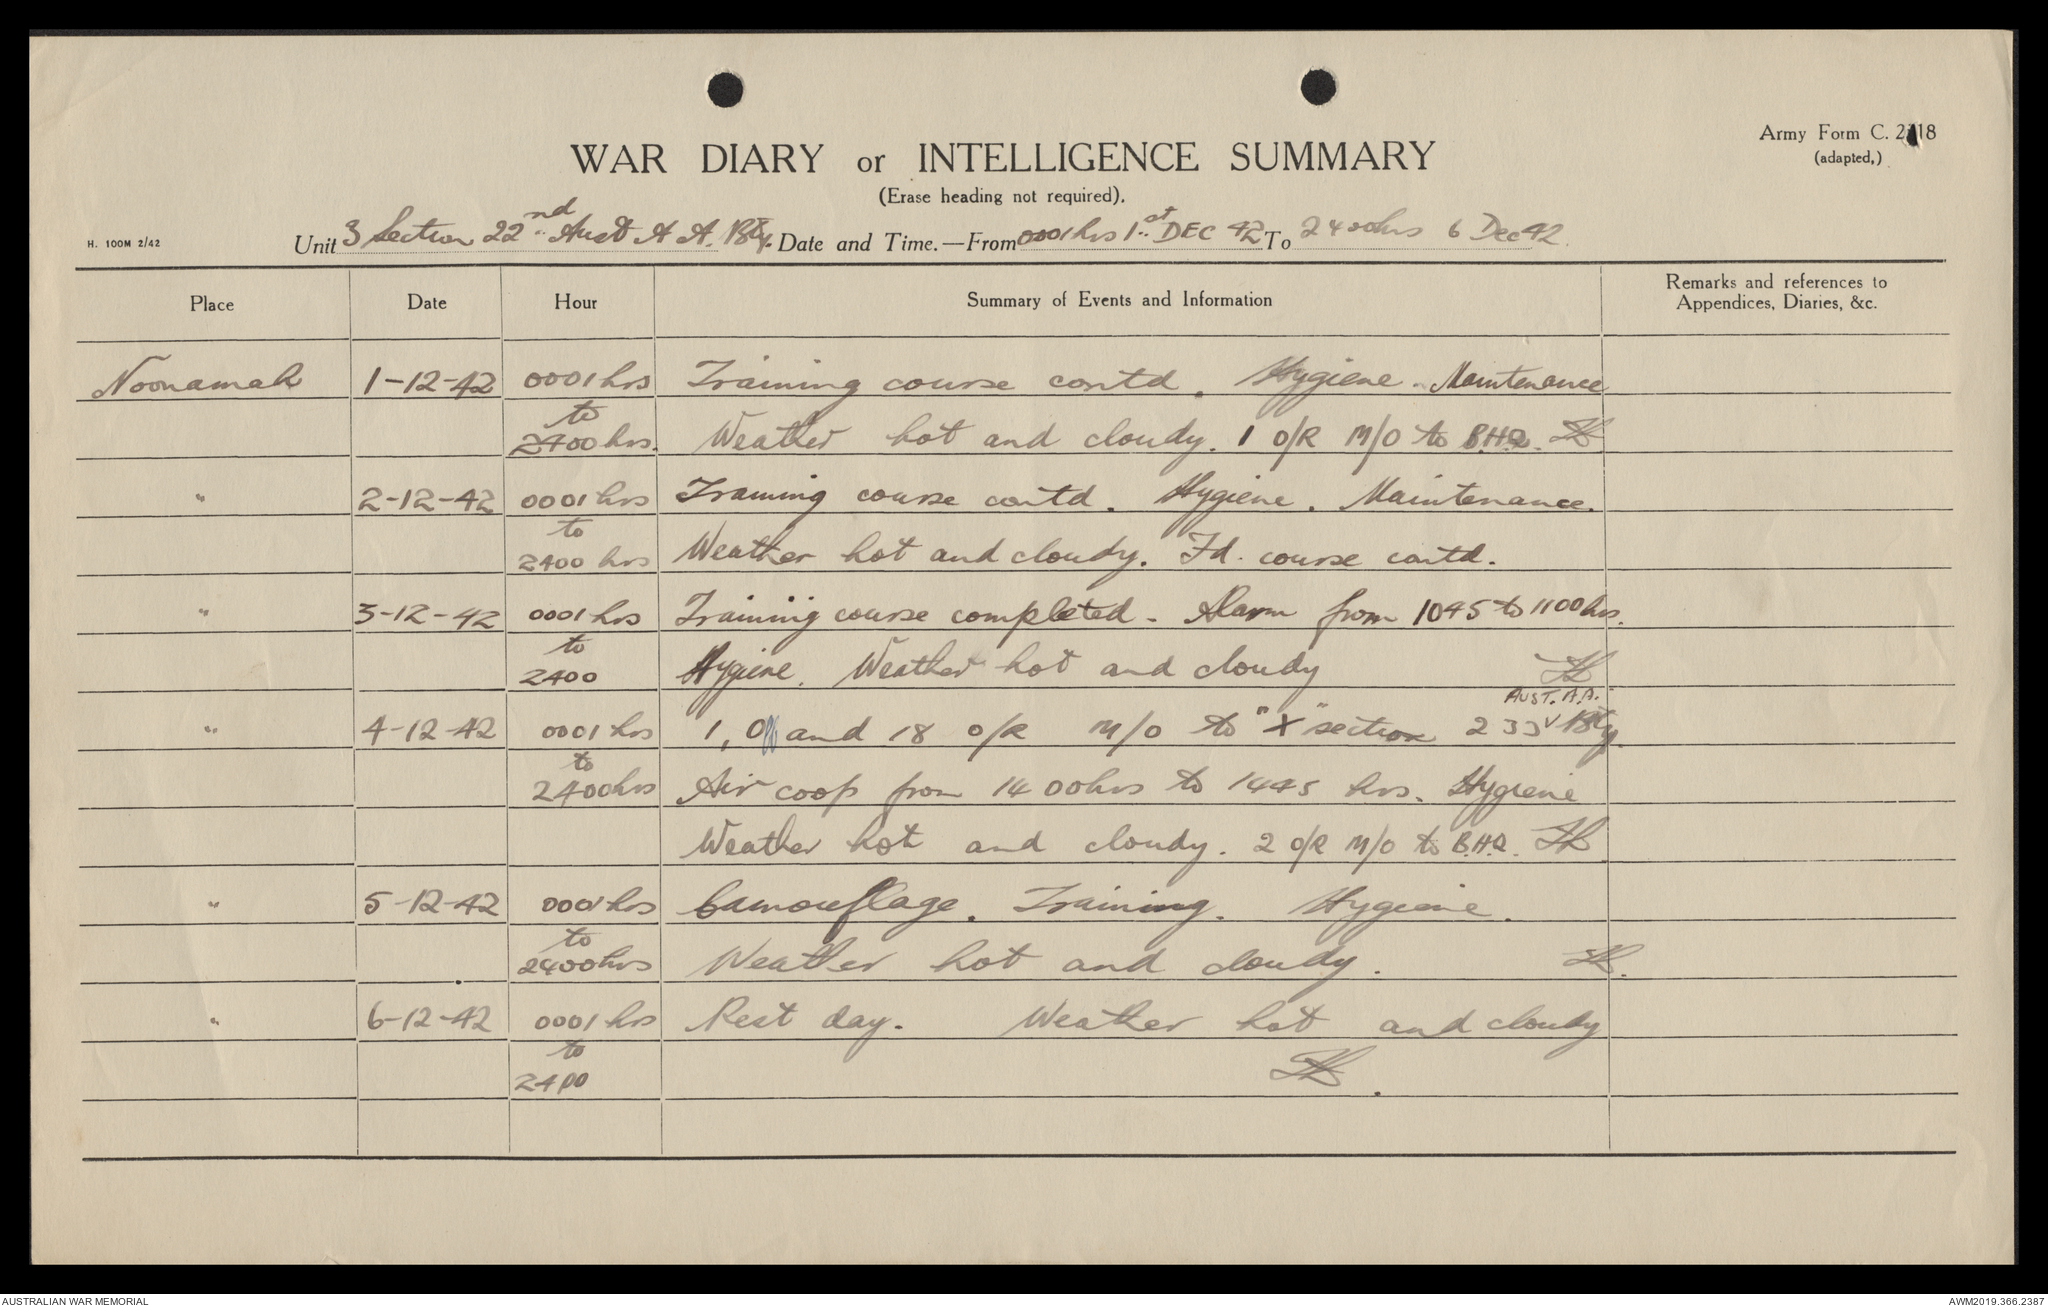 Army Form C. 2118
(adapted.)
WAR DIARY or INTELLIGENCE SUMMARY
(Erase heading not required).
H. 100M 2/42
Unit 3 Section 22nd Aust A A. Bty. Date and Time.—From 0001hrs 1st DEC 42 To 2400hrs 6 Dec 42.
Place Date Hour Summary of Events and Information Remarks and references to
Appendices, Diaries, &c.
Noonamah 1-12-42 0001 hrs Training course contd. Hygiene. Maintenance
to
2400 hrs. Weather hot and cloudy. 1 O/R M/O to B.H.Q.
" 2-12-42 0001 hrs Training course contd. Hygiene. Maintenance.
to
2400 hrs Weather hot and cloudy. Fd. course contd.
" 3-12-42 0001 hrs Training course completed - Alarm from 1045 to 1100 hrs.
to
2400 Hygiene. Weather hot and cloudy
AUST. A.A.
" 4-12-42 0001 hrs 1, Off and 18 O/R M/O to "X" section 233 Bty.
to
2400hrs Air coop from 1400hrs to 1445 hrs. Hygiene
Weather hot and cloudy. 2 O/R M/O to B.H.Q.
" 5-12-42 0001 hrs Camouflage. Training. Hygiene.
to
2400hrs Weather hot and cloudy.
" 6-12-42 0001 hrs Rest day. Weather hot and cloudy
to
2400
AUSTRALIAN WAR MEMORIAL AWM2019.366.2387